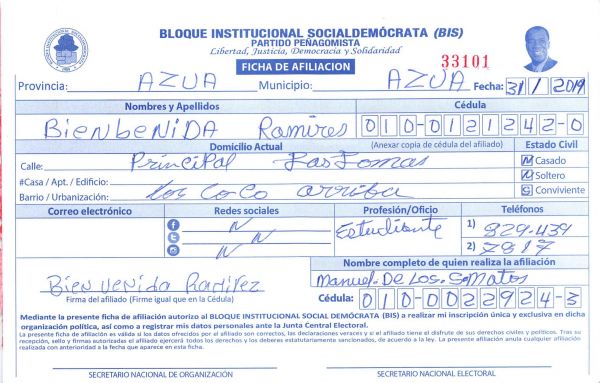 BLOQUE INSTITUCIONAL SOCIALDEMÓCRATA (BIS)
PARTIDO PEÑAGOMISTA
Libertad, Justicia, Democracia y Solidaridad
FICHA DE AFILIACION
33101
Provincia: AZUA Municipio: AZUA Fecha: 31/ / 2019
Nombres y Apellidos Cédula
BienbeNiDA Ramires 010-0121242-0
Domicilio Actual (Anexar copia de cédula del afiliado) Estado Civil
Calle: Principal Las Lomas N Casado
#Casa / Apt. / Edificio: N Soltero
Barrio / Urbanización: los CoCo arriba S Conviviente
Correo electrónico Redes sociales Profesión/Oficio Teléfonos
N Estudiante 1) 829-439
N 2) 7817
N
Nombre completo de quien realiza la afiliación
Bienvenida Ramirez Manuel. De Los. S. Matos
Firma del afiliado (Firme igual que en la Cédula) Cédula: 010-0022924-3
Mediante la presente ficha de afiliación autorizo al BLOQUE INSTITUCIONAL SOCIAL DEMÓCRATA (BIS) a realizar mi inscripción única y exclusiva en dicha
organización política, así como a registrar mis datos personales ante la Junta Central Electoral.
La presente ficha de afiliación es válida si los datos ofrecidos por el afiliado son correctos, las declaraciones veraces y si el afiliado tiene el disfrute de sus derechos civiles y políticos. Tras su
recepción, sello y firmas autorizadas el afiliado ejercerá todos los derechos y los deberes estatutariamente sancionados, de acuerdo a la ley. La presente afiliación anula cualquier afiliación
realizada con anterioridad a la fecha que aparece en esta ficha.
SECRETARIO NACIONAL DE ORGANIZACIÓN SECRETARIO NACIONAL ELECTORAL